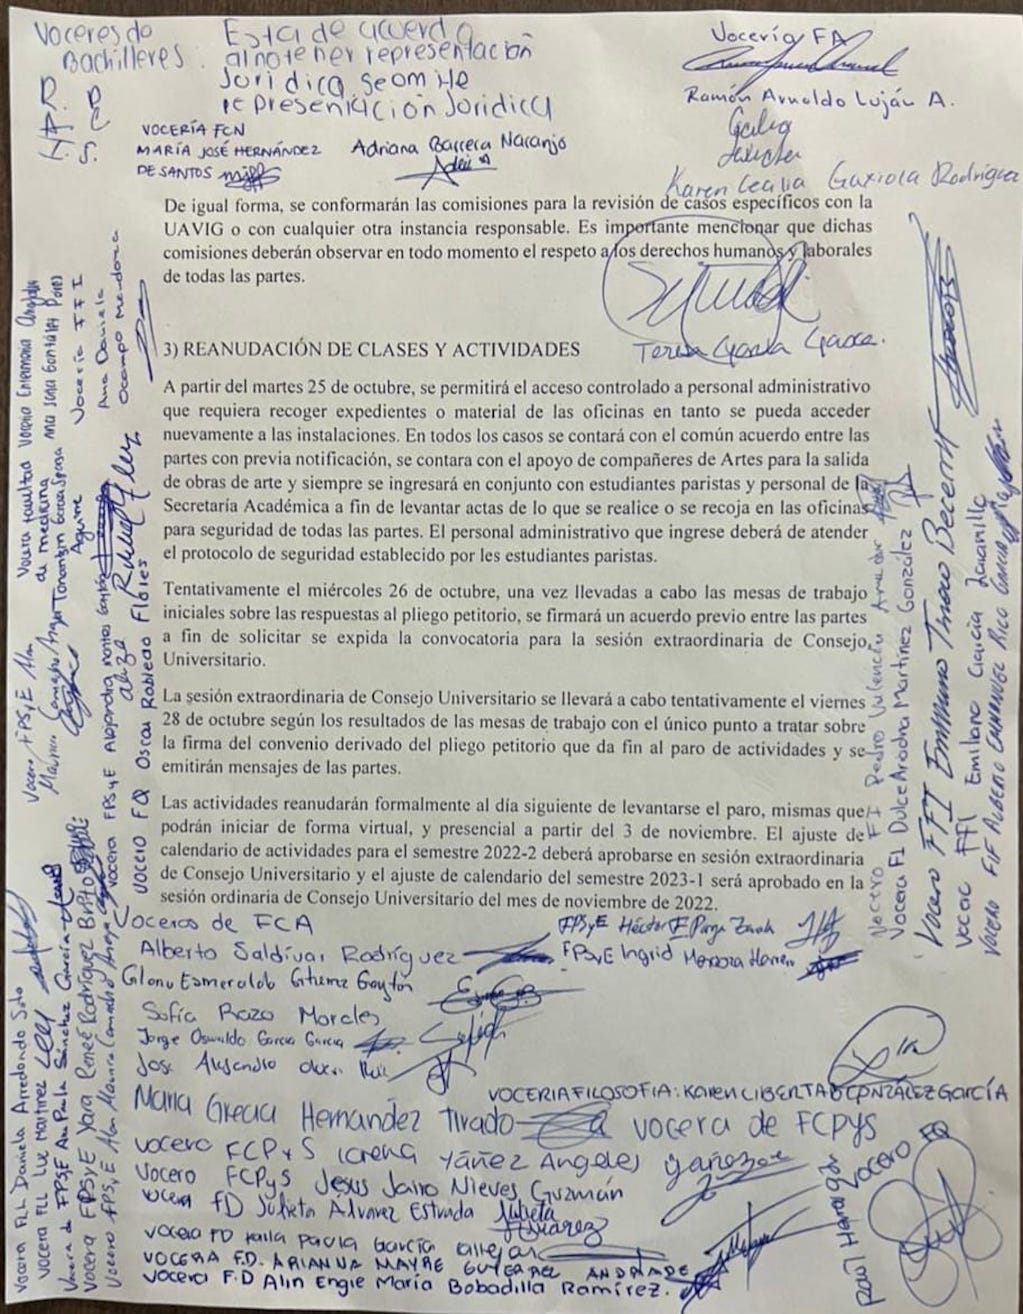 Voceres de
Bachilleres.
Esta de acuerdo
al no tener representación
Jurídica, se omite
representación Jurídica
Vocería FA
Ramón Arnoldo Luján A.
VOCERÍA FCN
MARÍA JOSÉ HERNÁNDEZ
DE SANTOS
Adriana Barrera Naranjo
Karen Cecilia Gaxiola Rodríguez
De igual forma, se conformarán las comisiones para la revisión de casos específicos con la
UAVIG o con cualquier otra instancia responsable. Es importante mencionar que dichas
comisiones deberán observar en todo momento el respeto a los derechos humanos y laborales
de todas las partes.
Teresa García Gasca.
3) REANUDACIÓN DE CLASES Y ACTIVIDADES
A partir del martes 25 de octubre, se permitirá el acceso controlado a personal administrativo
que requiera recoger expedientes o material de las oficinas en tanto se pueda acceder
nuevamente a las instalaciones. En todos los casos se contará con el común acuerdo entre las
partes con previa notificación, se contara con el apoyo de compañeres de Artes para la salida
de obras de arte y siempre se ingresará en conjunto con estudiantes paristas y personal de la
Secretaría Académica a fin de levantar actas de lo que se realice o se recoja en las oficinas
para seguridad de todas las partes. El personal administrativo que ingrese deberá de atender
el protocolo de seguridad establecido por les estudiantes paristas.
Tentativamente el miércoles 26 de octubre, una vez llevadas a cabo las mesas de trabajo
iniciales sobre las respuestas al pliego petitorio, se firmará un acuerdo previo entre las partes
a fin de solicitar se expida la convocatoria para la sesión extraordinaria de Consejo
Universitario.
La sesión extraordinaria de Consejo Universitario se llevará a cabo tentativamente el viernes
28 de octubre según los resultados de las mesas de trabajo con el único punto a tratar sobre
la firma del convenio derivado del pliego petitorio que da fin al paro de actividades y se
emitirán mensajes de las partes.
Las actividades reanudarán formalmente al día siguiente de levantarse el paro, mismas que
podrán iniciar de forma virtual, y presencial a partir del 3 de noviembre. El ajuste de
calendario de actividades para el semestre 2022-2 deberá aprobarse en sesión extraordinaria
de Consejo Universitario y el ajuste de calendario del semestre 2023-1 será aprobado en la
sesión ordinaria de Consejo Universitario del mes de noviembre de 2022.
Voceros de FCA
Alberto Saldívar Rodríguez
Sofía Razo Morales
Jorge Oswaldo García García
FPSyE Héctor
FPSyE Ingrid
VOCERIA FILOSOFIA: KAREN LIBERTAD GONZÁLEZ GARCÍA
María Grecia Hernandez Tirado vocera de FCPyS
vocero FCPyS Yáñez Angeles
Vocero FCPyS Jesus Jairo Nieves Guzmán
vocera FD Julieta Alvarez Estrada
vocera FD Karla Paola García
VOCERA F.D. ARIANNA MAYRE ANDRADE
Vocera F.D Alin Engie María Bobadilla Ramírez.
Vocera FLL Daniela Arredondo Soto
Vocera FLL Luz Martínez
Vocera de FPSyE Ana Paula Sánchez García
Vocera FPSyE Yara Reneé Rodríguez Brito
Vocero FPSyE Alan
Vocera FPSyE
Vocero FQ Oscar Robledo Flores
Vocera facultad
de medicina
Vocería Enfermería
Vocería FFI
Ana Daniela
Ocampo Mendoza
Vocero FI Pedro Valencia Amador
Vocera FI Dulce Ariadna Martínez González
Vocero FFI Emiliano Tinoco Becerril
Vocal FFI Emiliano García Jaramillo
Vocero FIF
Raúl
Vocero FQ